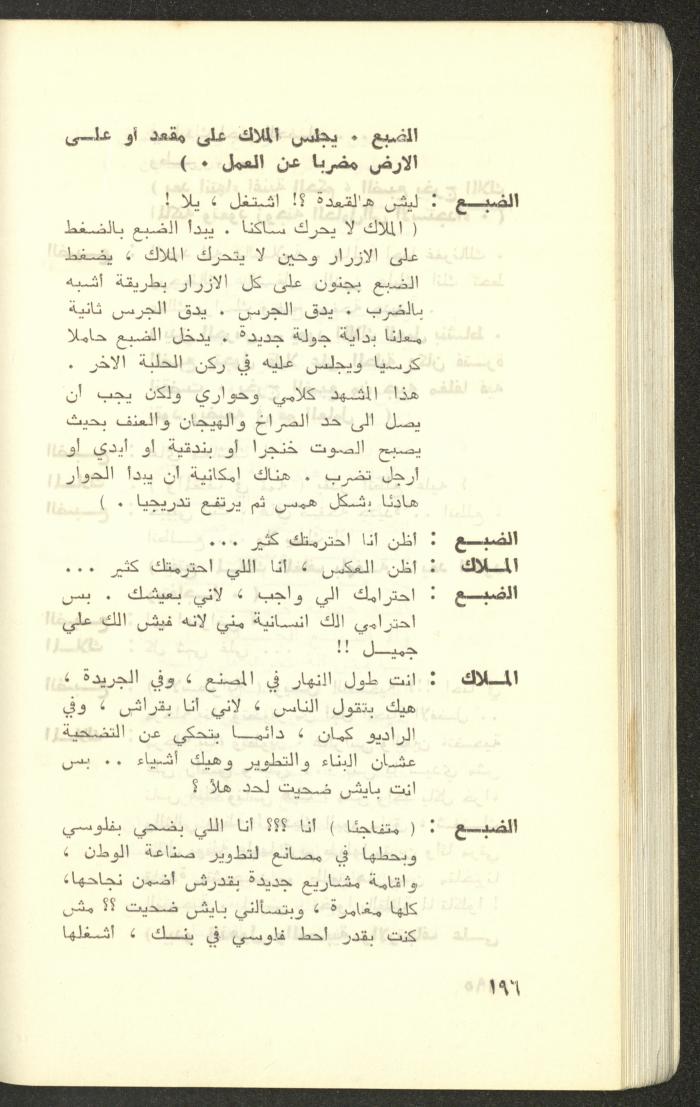 الضبع . يجلس الملاك على مقعد أو علـى
الارض مضربا عن العمل . )
الضبـــع : ليش هالقعدة ؟! اشتغل ، يلا !
( الملاك لا يحرك ساكنا . يبدأ الضبع بالضغط
على الازرار وحين لا يتحرك الملاك ، يضغط
الضبع بجنون على كل الازرار بطريقة أشبه
بالضرب . يدق الجرس . يدق الجرس ثانية
معلنا بداية جولة جديدة . يدخل الضبع حاملا
كرسيا ويجلس عليه في ركن الحلبة الاخر .
هذا المشهد كلامي وحواري ولكن يجب أن
يصل الى حد الصراخ والهيجان والعنف بحيث
يصبح الصوت خنجرا أو بندقية أو أيدي أو
أرجل تضرب . هناك امكانية أن يبدأ الحوار
هادئا بشكل همس ثم يرتفع تدريجيا . )
الضبـــع : أظن أنا احترمتك كثير ...
المـــلاك : أظن العكس ، أنا اللي احترمتك كثير ...
الضبـــع : احترامك الي واجب ، لاني بعيشك . بس
احترامي الك انسانية مني لانه فيش الك علي
جميــل !!
المـــلاك : انت طول النهار في المصنع ، وفي الجريدة ،
هيك بتقول الناس ، لاني أنا بقراش ، وفي
الراديو كمان ، دائمــا بتحكي عن التضحية
عشان البناء والتطوير وهيك أشياء .. بس
انت بايش ضحيت لحد هلأ ؟
الضبـــع : ( متفاجئا ) أنا ؟؟؟ أنا اللي بضحي بفلوسي
وبحطها في مصانع لتطوير صناعة الوطن ،
واقامة مشاريع جديدة بقدرش أضمن نجاحها،
كلها مغامرة ، وبتسألني بايش ضحيت ؟؟ مش
كنت بقدر أحط فلوسي في بنــك ، أشغلها
١٩٦